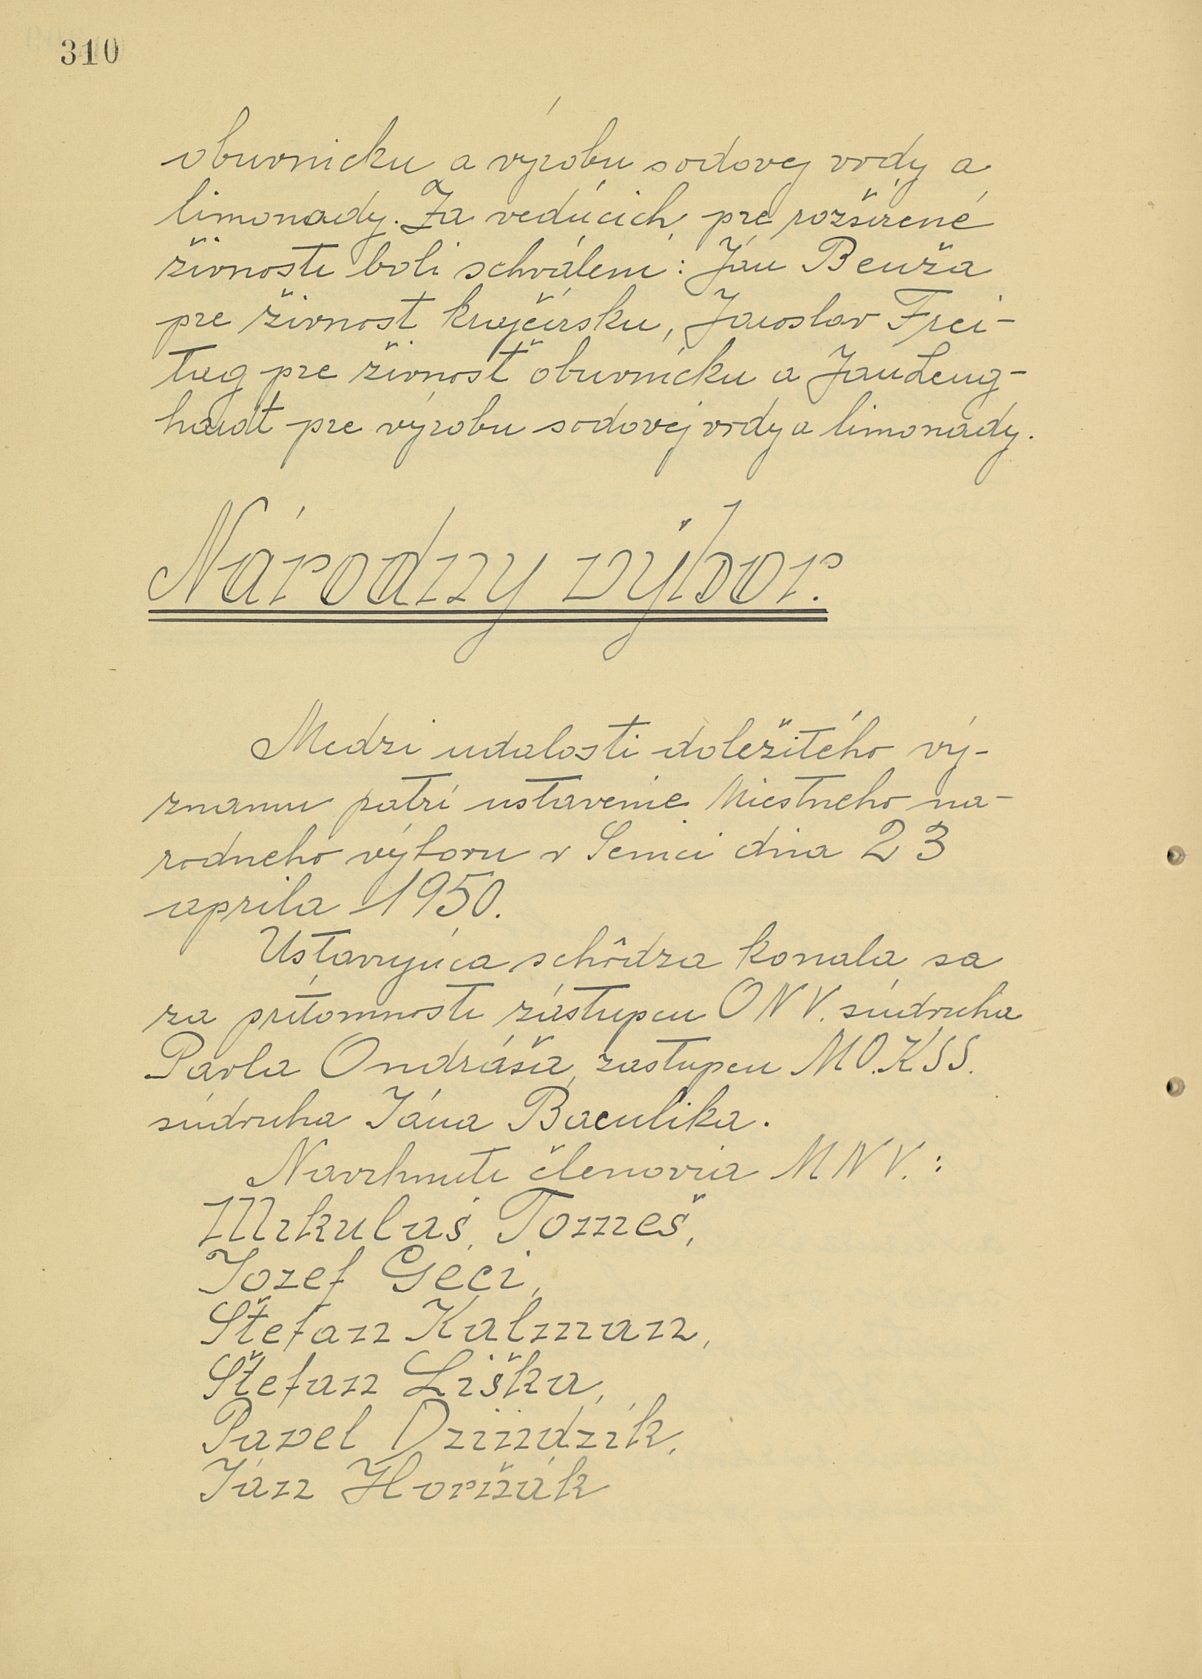 310
obuvnicku a výrobu sodovej vody a
limonady. Za vedúcich pre rozšírené
živnosti boli schválení: Ján Benža
pre živnosť krajčírsku, Jaroslav Frei-
tag pre živnosť obuvnícku a Jan Leng-
hardt pre výrobu sodovej vody a limonády.
Národný výbor.
Medzi udalosti doležitého vý-
znamu patrí ustavenie Miestneho na-
rodneho výboru v Senici dňa 23
aprila 1950.
Ustavujúca schôdza konala sa
za prítomnosti zástupcu ONV. súdruha
Pavla Ondráša, zastupcu MO.KSS.
súdruha Jána Baculika.
Navrhnuti členovia MNV.:
Mikuláš Tomeš,
Jozef Géci,
Štefan Kalman,
Štefan Liška,
Pavel Dzindzík,
Ján Horňák